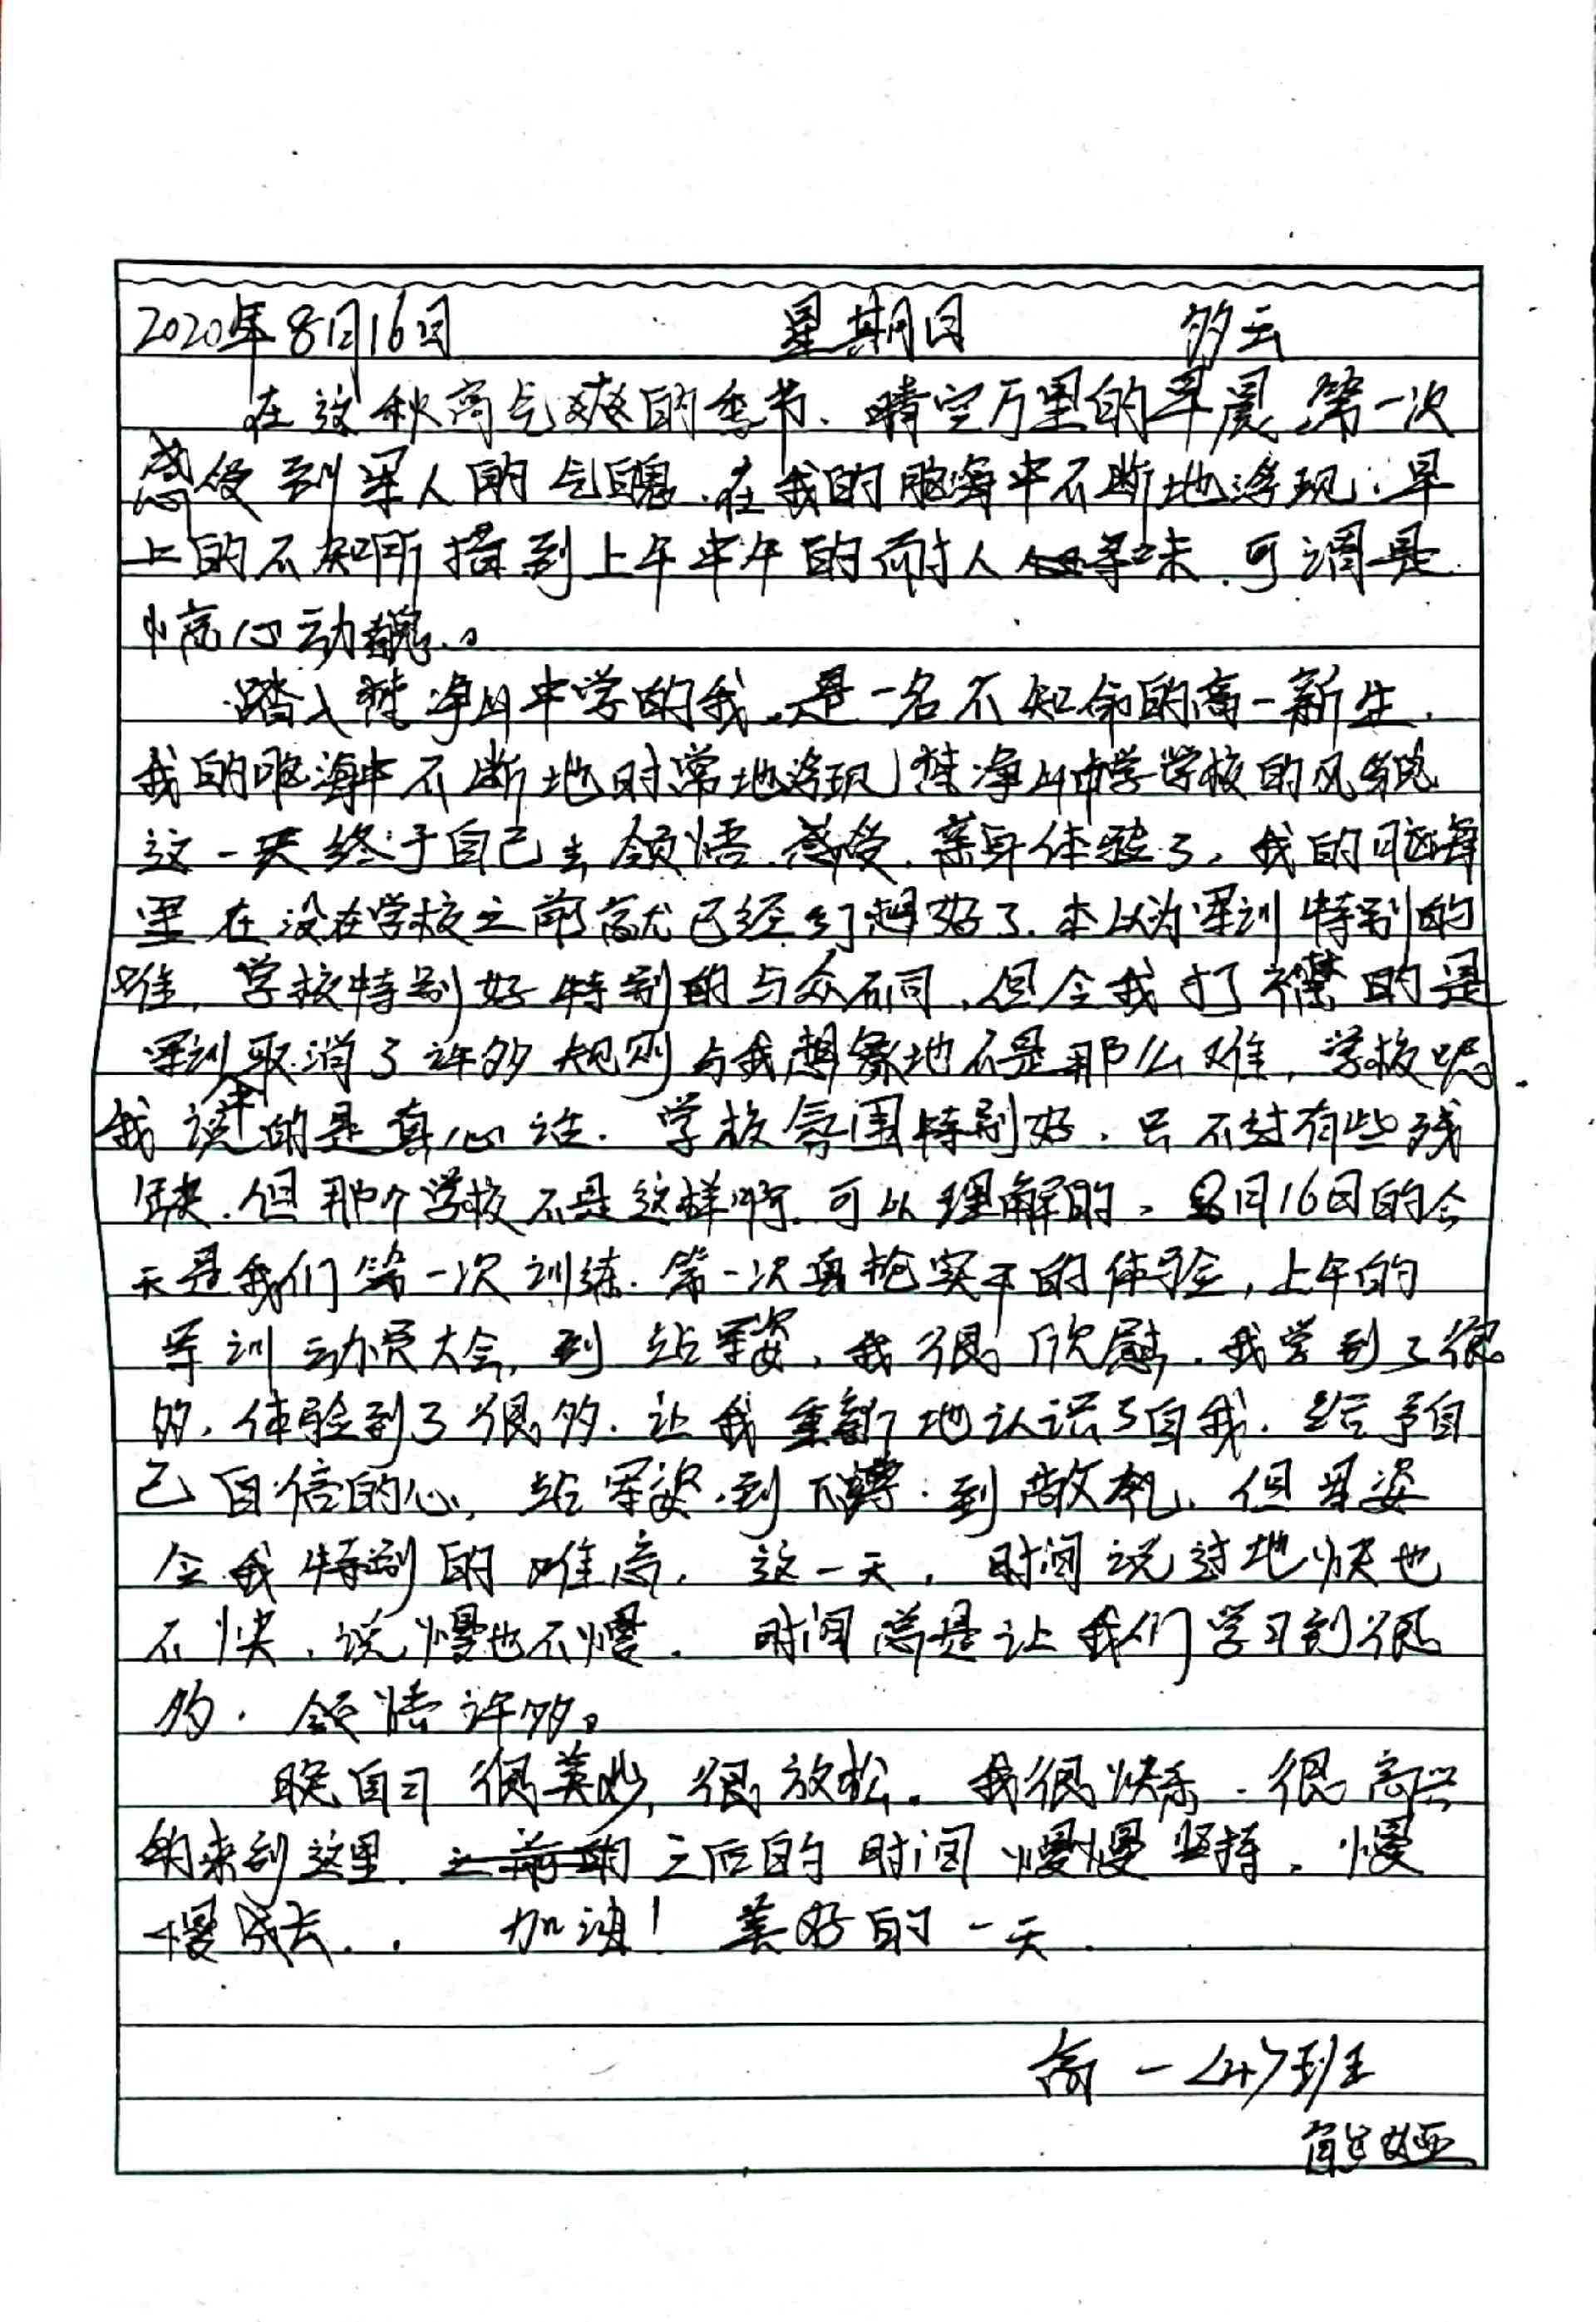 2020年8月16日 星期日 多云
在这秋高气爽的季节、晴空万里的早晨,第一次
感受到军人的气魄.在我的脑海中不断地浮现.早
上的不知所措到上午中午的耐人寻味.可谓是
惊心动魄.。
踏入梵净山中学的我.是一名不知命的高一新生.
我的脑海中不断地时常地浮现梵净山中学学校的风貌
这一天终于自己去领悟.感受.亲身体验了,我的脑海
里在没在学校之前就已经幻想好了.本以为军训特别的
难,学校特别好特别的与众不同,但令我打襟的是
军训取消了许多规则与我想象地不是那么难,学校呢.
我讲的是真心话.学校氛围特别好.只不过有些残
缺.但那个学校不是这样啊.可以理解的,8月16日的今
天是我们第一次训练.第一次真枪实干的体验,上午的
军训动员大会,到站军姿,我很欣慰,我学到了很
多,体验到了很多.让我重新地认识了自我.给予自
己自信的心,站军姿.到下蹲:到敬礼,但军姿
令我特别的难高,这一天,时间说过地快也
不快.说慢也不慢.时间总是让我们学习到很
多.领悟许多。
晚自习很美妙,很放松。我很快乐.很高兴
的来到这里.之后的时间慢慢坚持,慢
慢成长..加油!美好的一天.
高一<4>班
熊娅